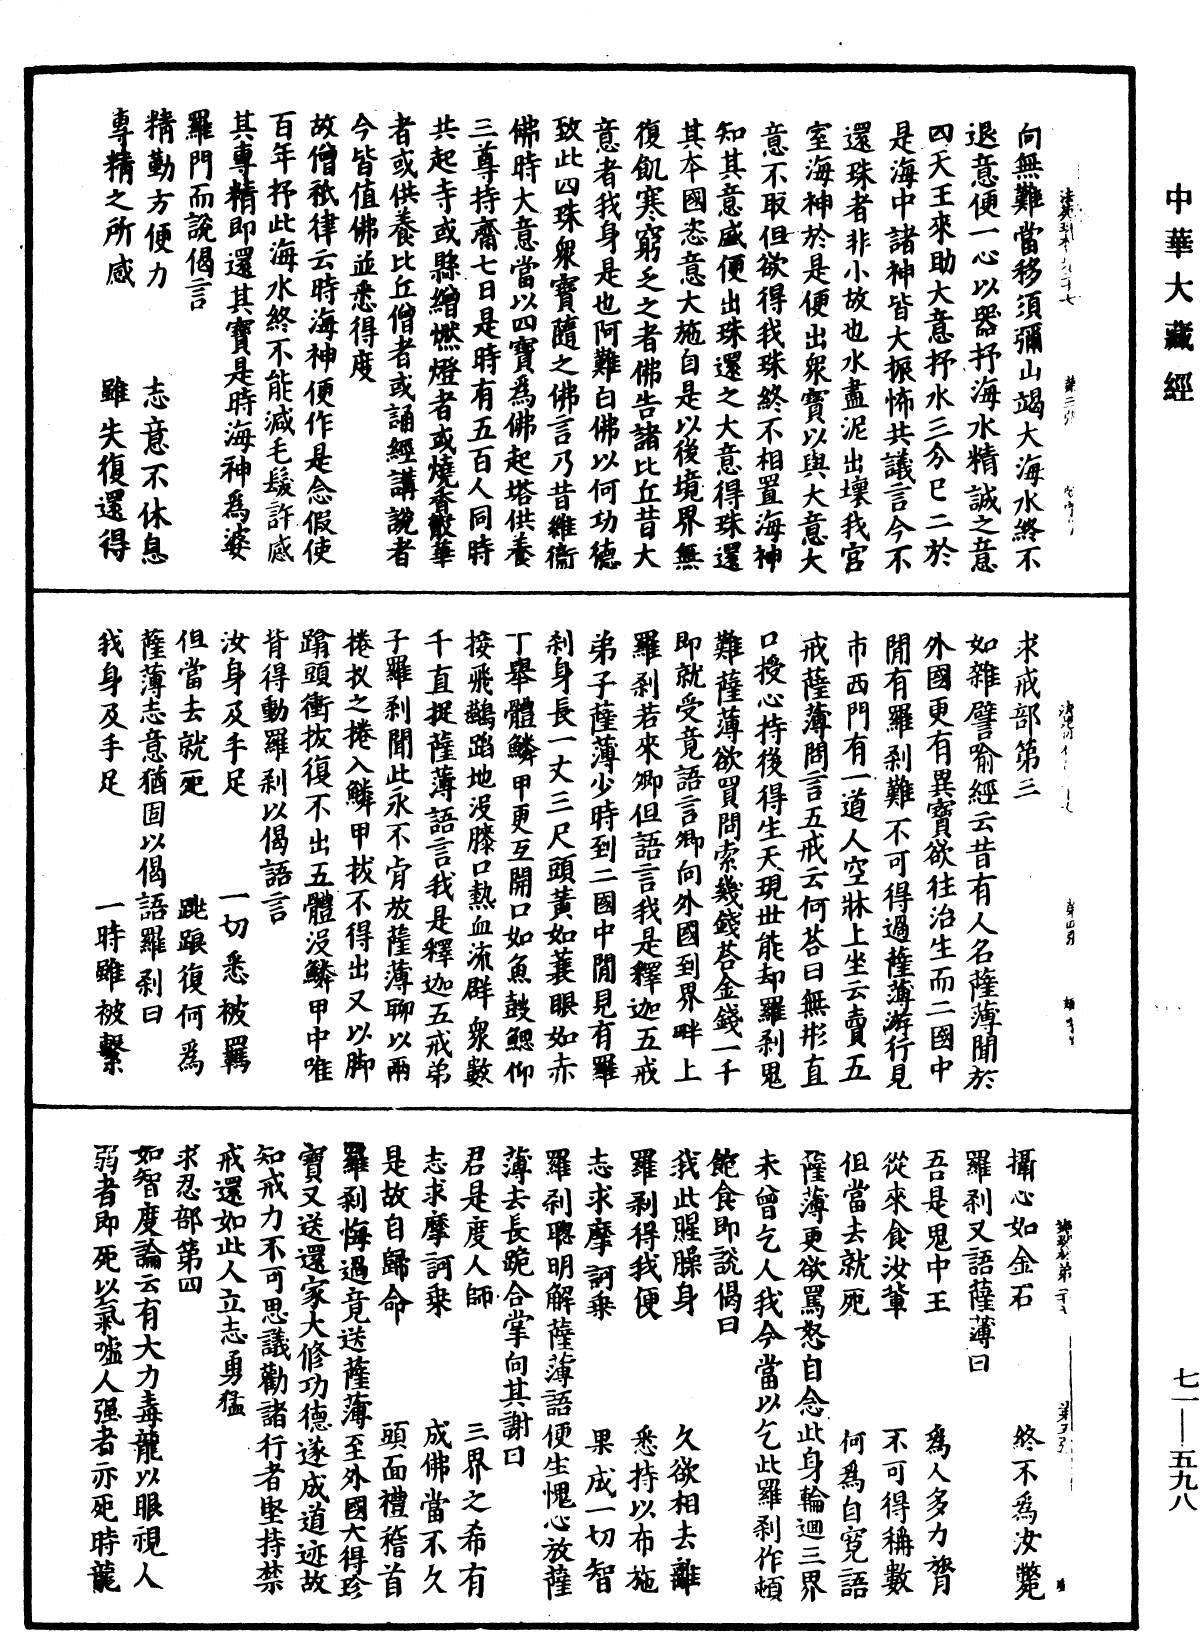 中華大藏經
向無難當移須彌山竭大海水終不
退意便一心以器抒海水精誠之意
四天王來助大意抒水三分已二於
是海中諸神皆大振怖共議言今不
還珠者非小故也水盡泥出壞我宮
室海神於是便出眾寶以與大意大
意不取但欲得我珠終不相置海神
知其意盛便出珠還之大意得珠還
其本國恣意大施自是以後境界無
復飢寒窮乏之者佛告諸比丘昔大
意者我身是也阿難白佛以何功德
致此四珠眾寶隨之佛言乃昔維衛
佛時大意當以四寶為佛起塔供養
三尊持齋七日是時有五百人同時
共起寺或縣繒燃燈者或燒香散華
者或供養比丘僧者或誦經講說者
今皆值佛並悉得度
故僧祇律云時海神便作是念假使
百年抒此海水終不能減毛髮許感
其專精即還其寶是時海神為婆
羅門而說偈言
精勤方便力　志意不休息
專精之所感　雖失復還得
求戒部第三
如雜譬喻經云昔有人名薩薄聞於
外國更有異寶欲往治生而二國中
間有羅剎難不可得過薩薄游行見
市西門有一道人空牀上坐云賣五
戒薩薄問言五戒云何荅曰無形直
口授心持後得生天現世能却羅剎鬼
難薩薄欲買問索幾錢荅金錢一千
即就受竟語言卿向外國到界畔上
羅剎若來卿但語言我是釋迦五戒
弟子薩薄少時到二國中間見有羅
剎身長一丈三尺頭黃如蓑眼如赤
丁舉體鱗甲更互開口如魚鼓鰓仰
接飛鷂蹈地沒膝口熱血流群眾數
千直捉薩薄語言我是釋迦五戒弟
子羅剎聞此永不肯放薩薄聊以兩
捲扠之捲入鱗甲拔不得出又以腳
踏頭衝拔復不出五體沒鱗甲中唯
背得動羅剎以偈語言
汝身及手足　一切悉被羈
但當去就死　跳踉復何為
薩薄志意猶固以偈語羅剎曰
我身及手足　一時雖被繫
攝心如金石　終不為汝斃
羅剎又語薩薄曰
吾是鬼中王　為人多力膂
從來食汝輩　不可得稱數
但當去就死　何為自寬語
薩薄更欲罵怒自念此身輪迴三界
未曾乞人我今當以乞此羅剎作頓
飽食即說偈曰
我此腥臊身　久欲相去離
羅剎得我便　悉持以布施
志求摩訶乘　果成一切智
羅剎聰明解薩薄語便生愧心放薩
薄去長跪合掌向其謝曰
君是度人師　三界之希有
志求摩訶乘　成佛當不久
是故自歸命　頭面禮稽首
羅剎悔過竟送薩薄至外國大得珍
寶又送還家大修功德遂成道迹故
知戒力不可思議勸諸行者堅持禁
戒還如此人立志勇猛
求忍部第四
如智度論云有大力毒龍以眼視人
弱者即死以氣噓人強者亦死時龍
七一—五九八